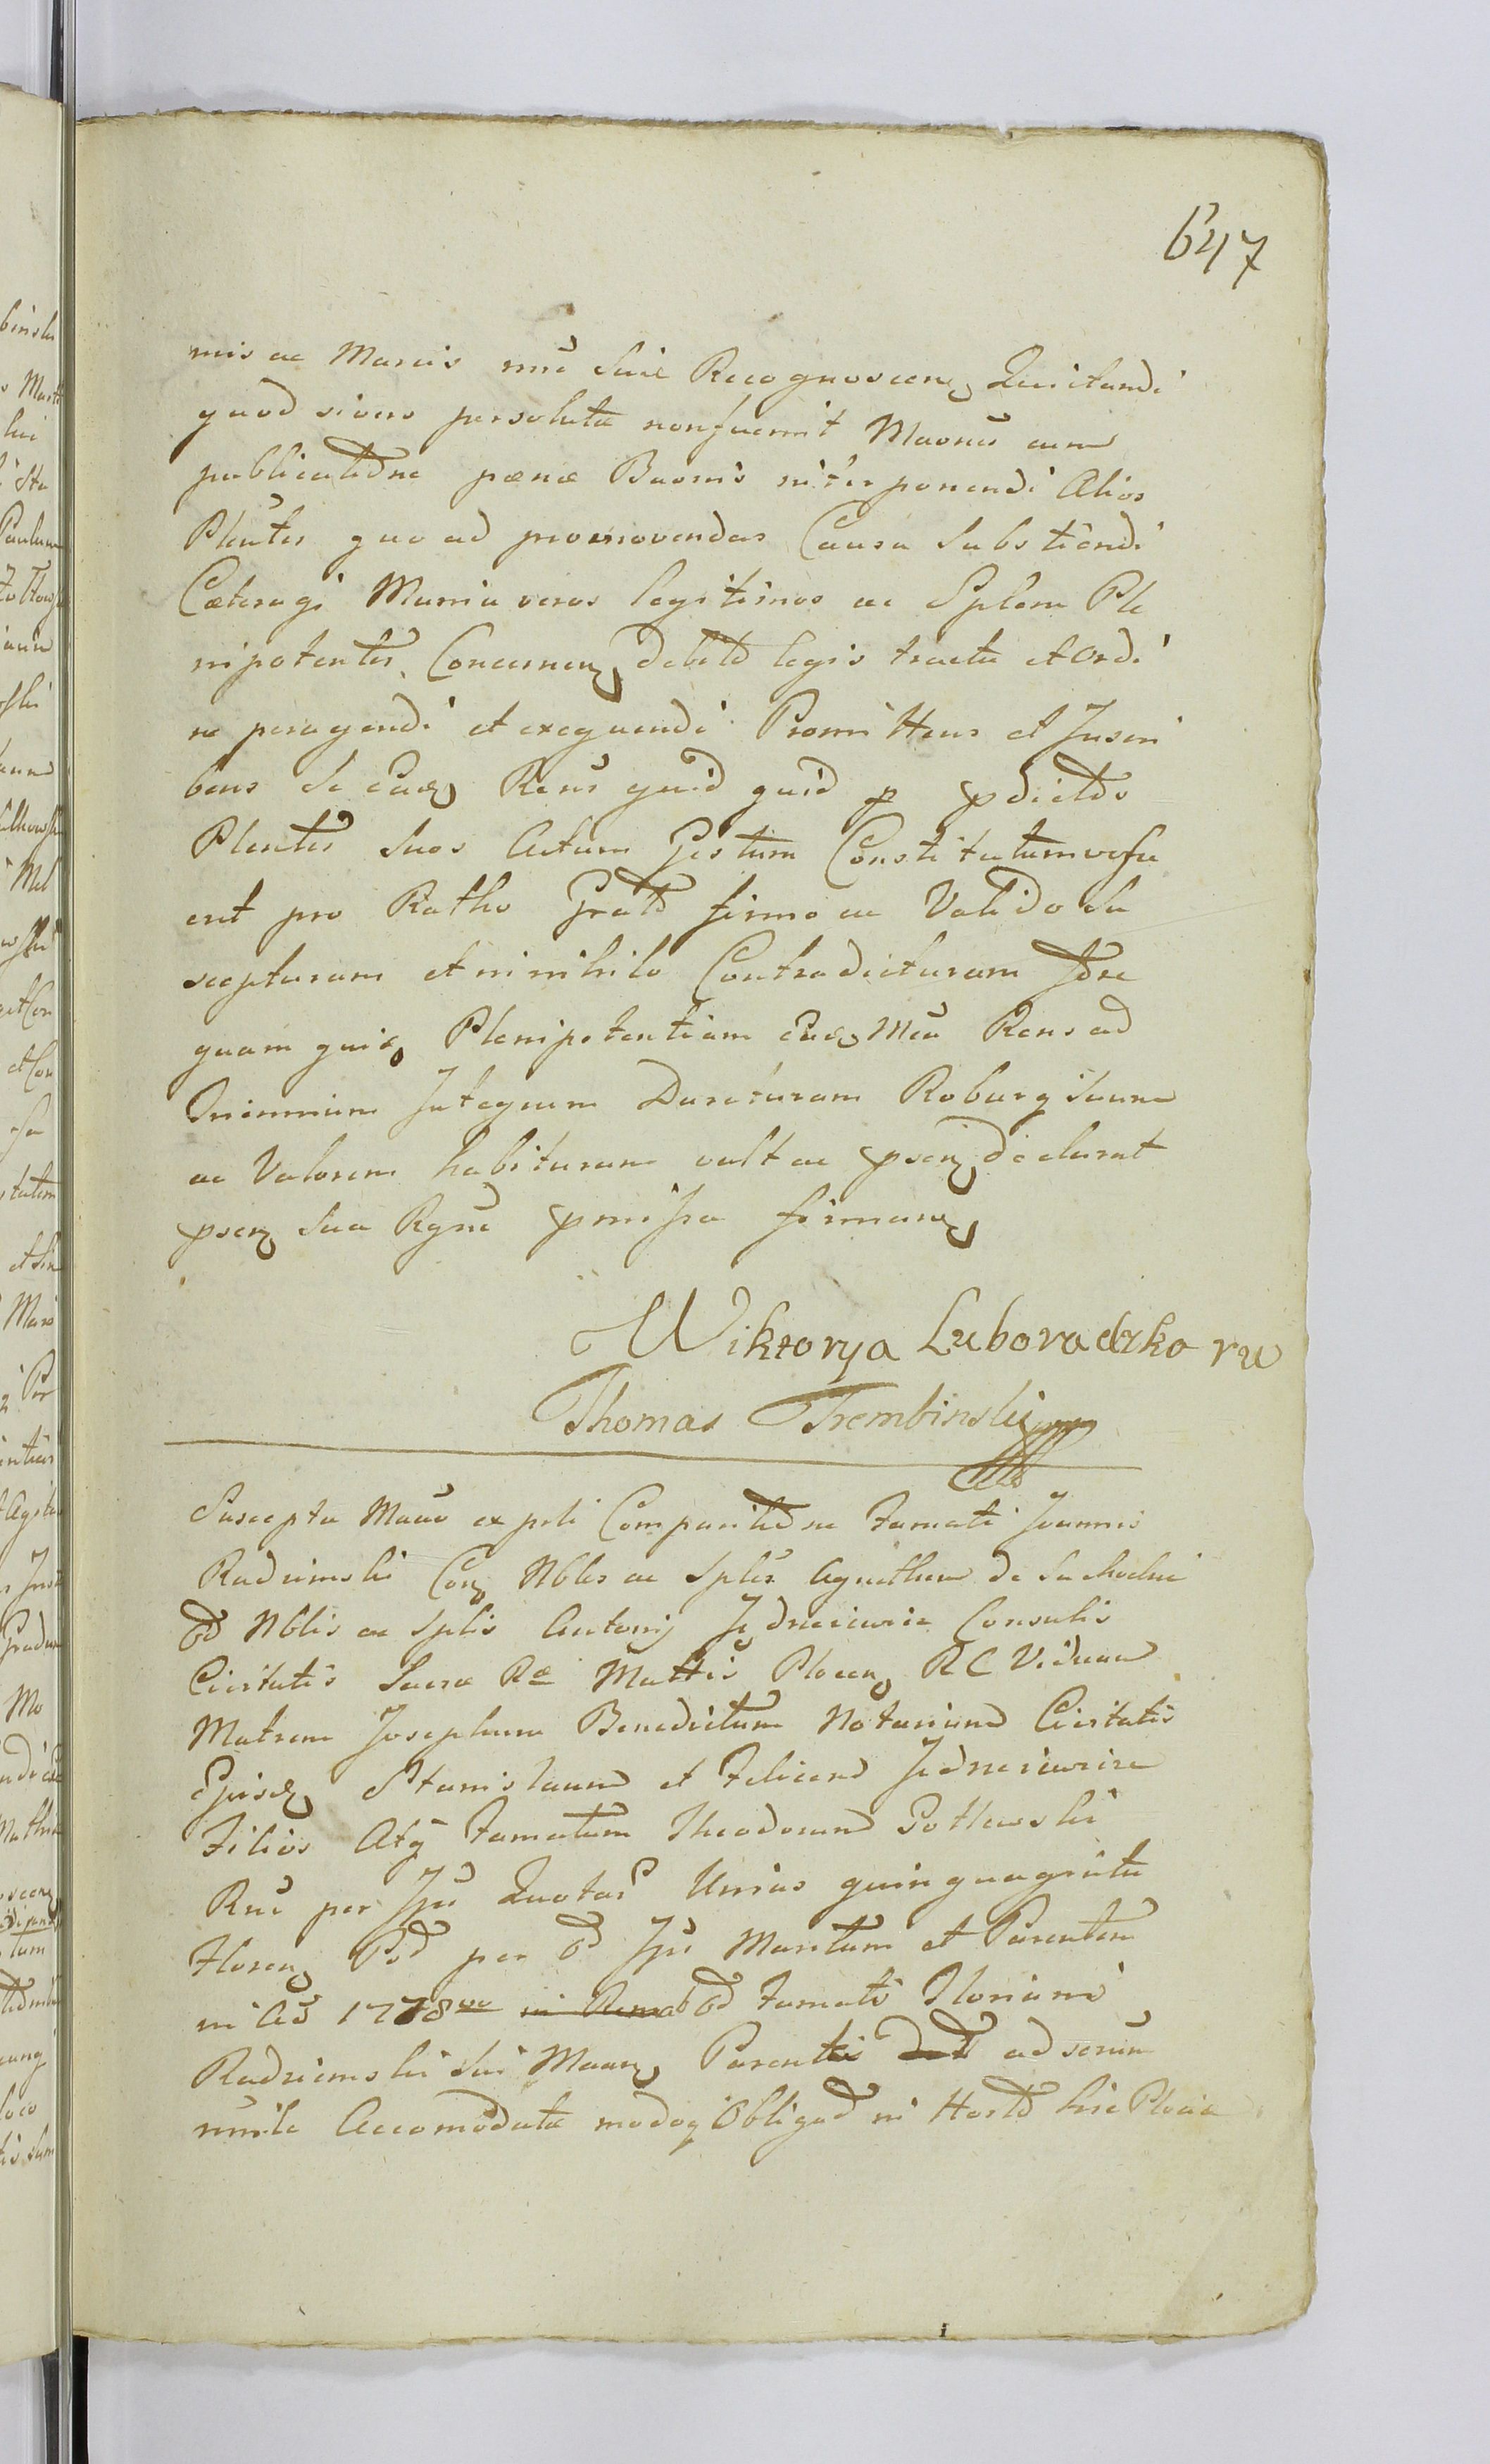 647
mis ac Mancis nne Suie Recognoscen Quitandi
quod sivero persoluta nonfuerit Maonus cum
publicatōne pænæ Baonis interponendi Alios
Pleñtes quo ad promovendas Causa Substiēndi
Cæteraq Munia veros legitimos ac Splem Ple
nipotentes Concernen debito legis tractu et Ordi
ne peragendi et exequendi Promittens et Inscri
bens Se Eadem Rens quid quid p pdictos
Plentes Suos Actum Gestum Constitutumve fu
erit pro Ratho Grato firmo ac Valido Su
scepturam et in nihilo Contradicturam
quam quid Plenipotentiam Meu Rens ad
Triennium Integrum Duraturam Roburq Suum
ac Valorem habituram vult ac psen declarat
psen Sua Rgne pmissa firman
Wiktorya Luboradzka rw
Thomas Trembinski
Suscepta Mauo ex psti Comparitōne Famati Joannis
Radzimski Con Nbles ac Sples Agnetham de Suchocki
Nblis ac Splis Antonij Jędrzeiewicz Consulis
Civitatis Sacræ Ræ Mattis Plocen RC Viduam
Matrem Josephum Benedictum Notarium Civitatis
Ejusd Stanislaum et Felicem Jędrzeiewicz
Filios Atq Famatum Theodorum Gotlewski
Rne per Quotas Unius quinquaginta
Floren Pod per Maritum et Parentem
in Ao 1778vo in Rema Famati Floriani
Radziemski Sui Mauen Parentis ad serum
Accomodata modoq Obligad in Hortō hic Plociæ